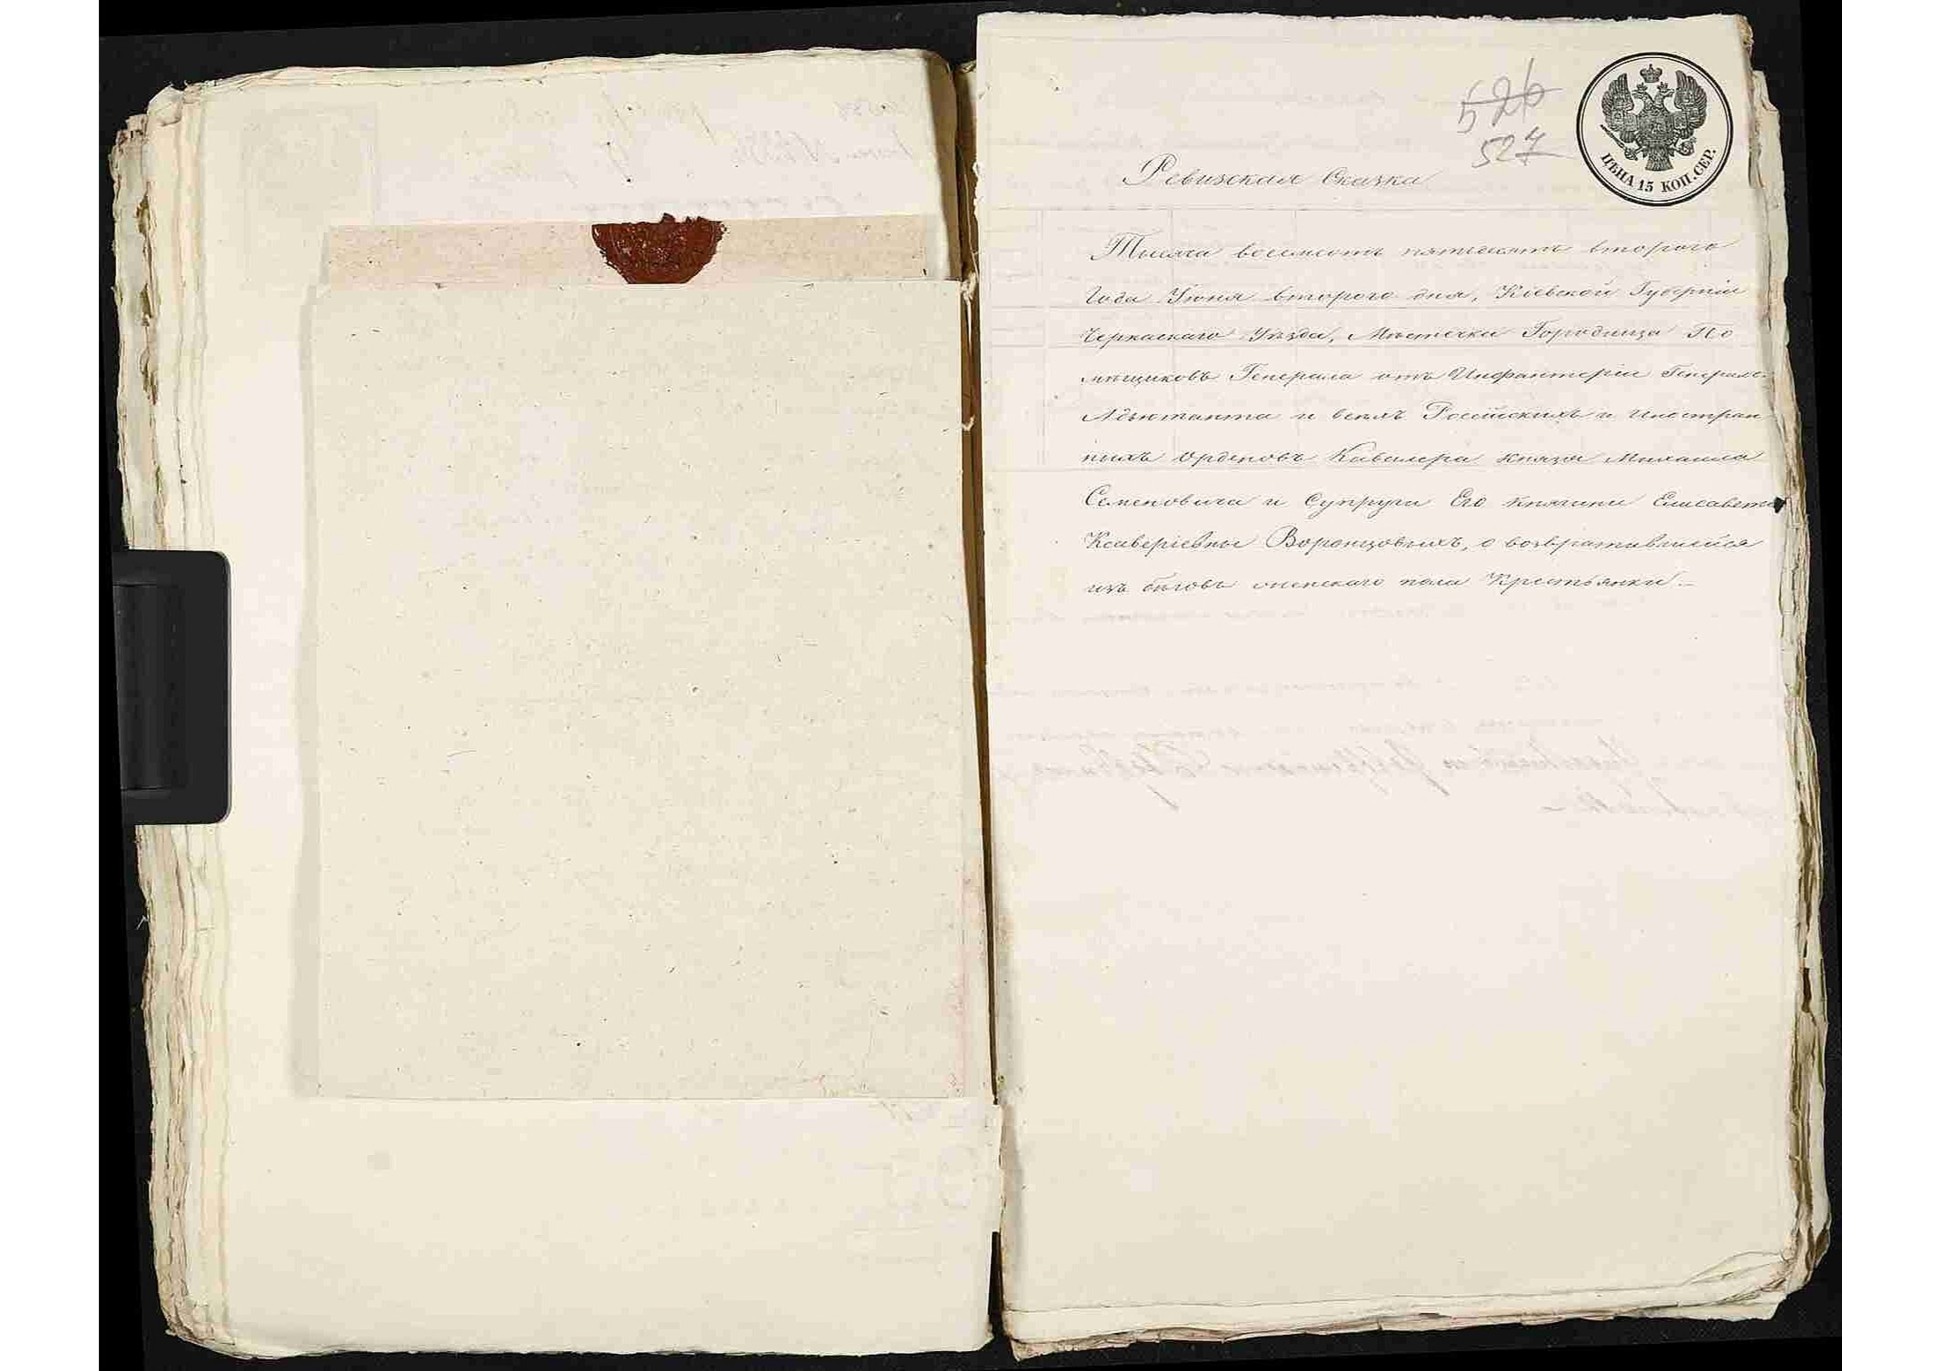 526
527
ЦѢНА 15 КОП. СЕР.
Ревизская Сказка
Тысяча восемсотъ пятьдесятъ второго
Года Іюня второго дня, Кіевской Губерніи
Черкаскаго Уѣзда, Мѣстечка Городища По
мѣщиковъ Генерала отъ Инфантеріи Генералъ
Адъютанта и всѣхъ Россійскихъ и Иностран
ныхъ Орденовъ Кавалера Князя Михаила
Семеновича и Супруги Его Княгини Елисаветы
Ксаверіевны Воронцовыхъ, о возвратившейся
изъ бѣговъ женскаго пола Крестьянки.